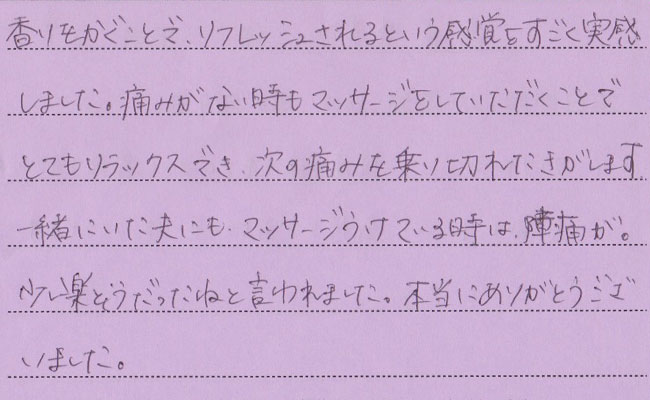 香りをかぐことで、リフレッシュされるという感覚をすごく実感
しました。痛みがない時もマッサージをしていただくことで
とてもリラックスでき、次の痛みを乗り切れたきがします
一緒にいた夫にも、マッサージうけている時は、陣痛が。
少し楽そうだったねと言われました。本当にありがとうござ
いました。